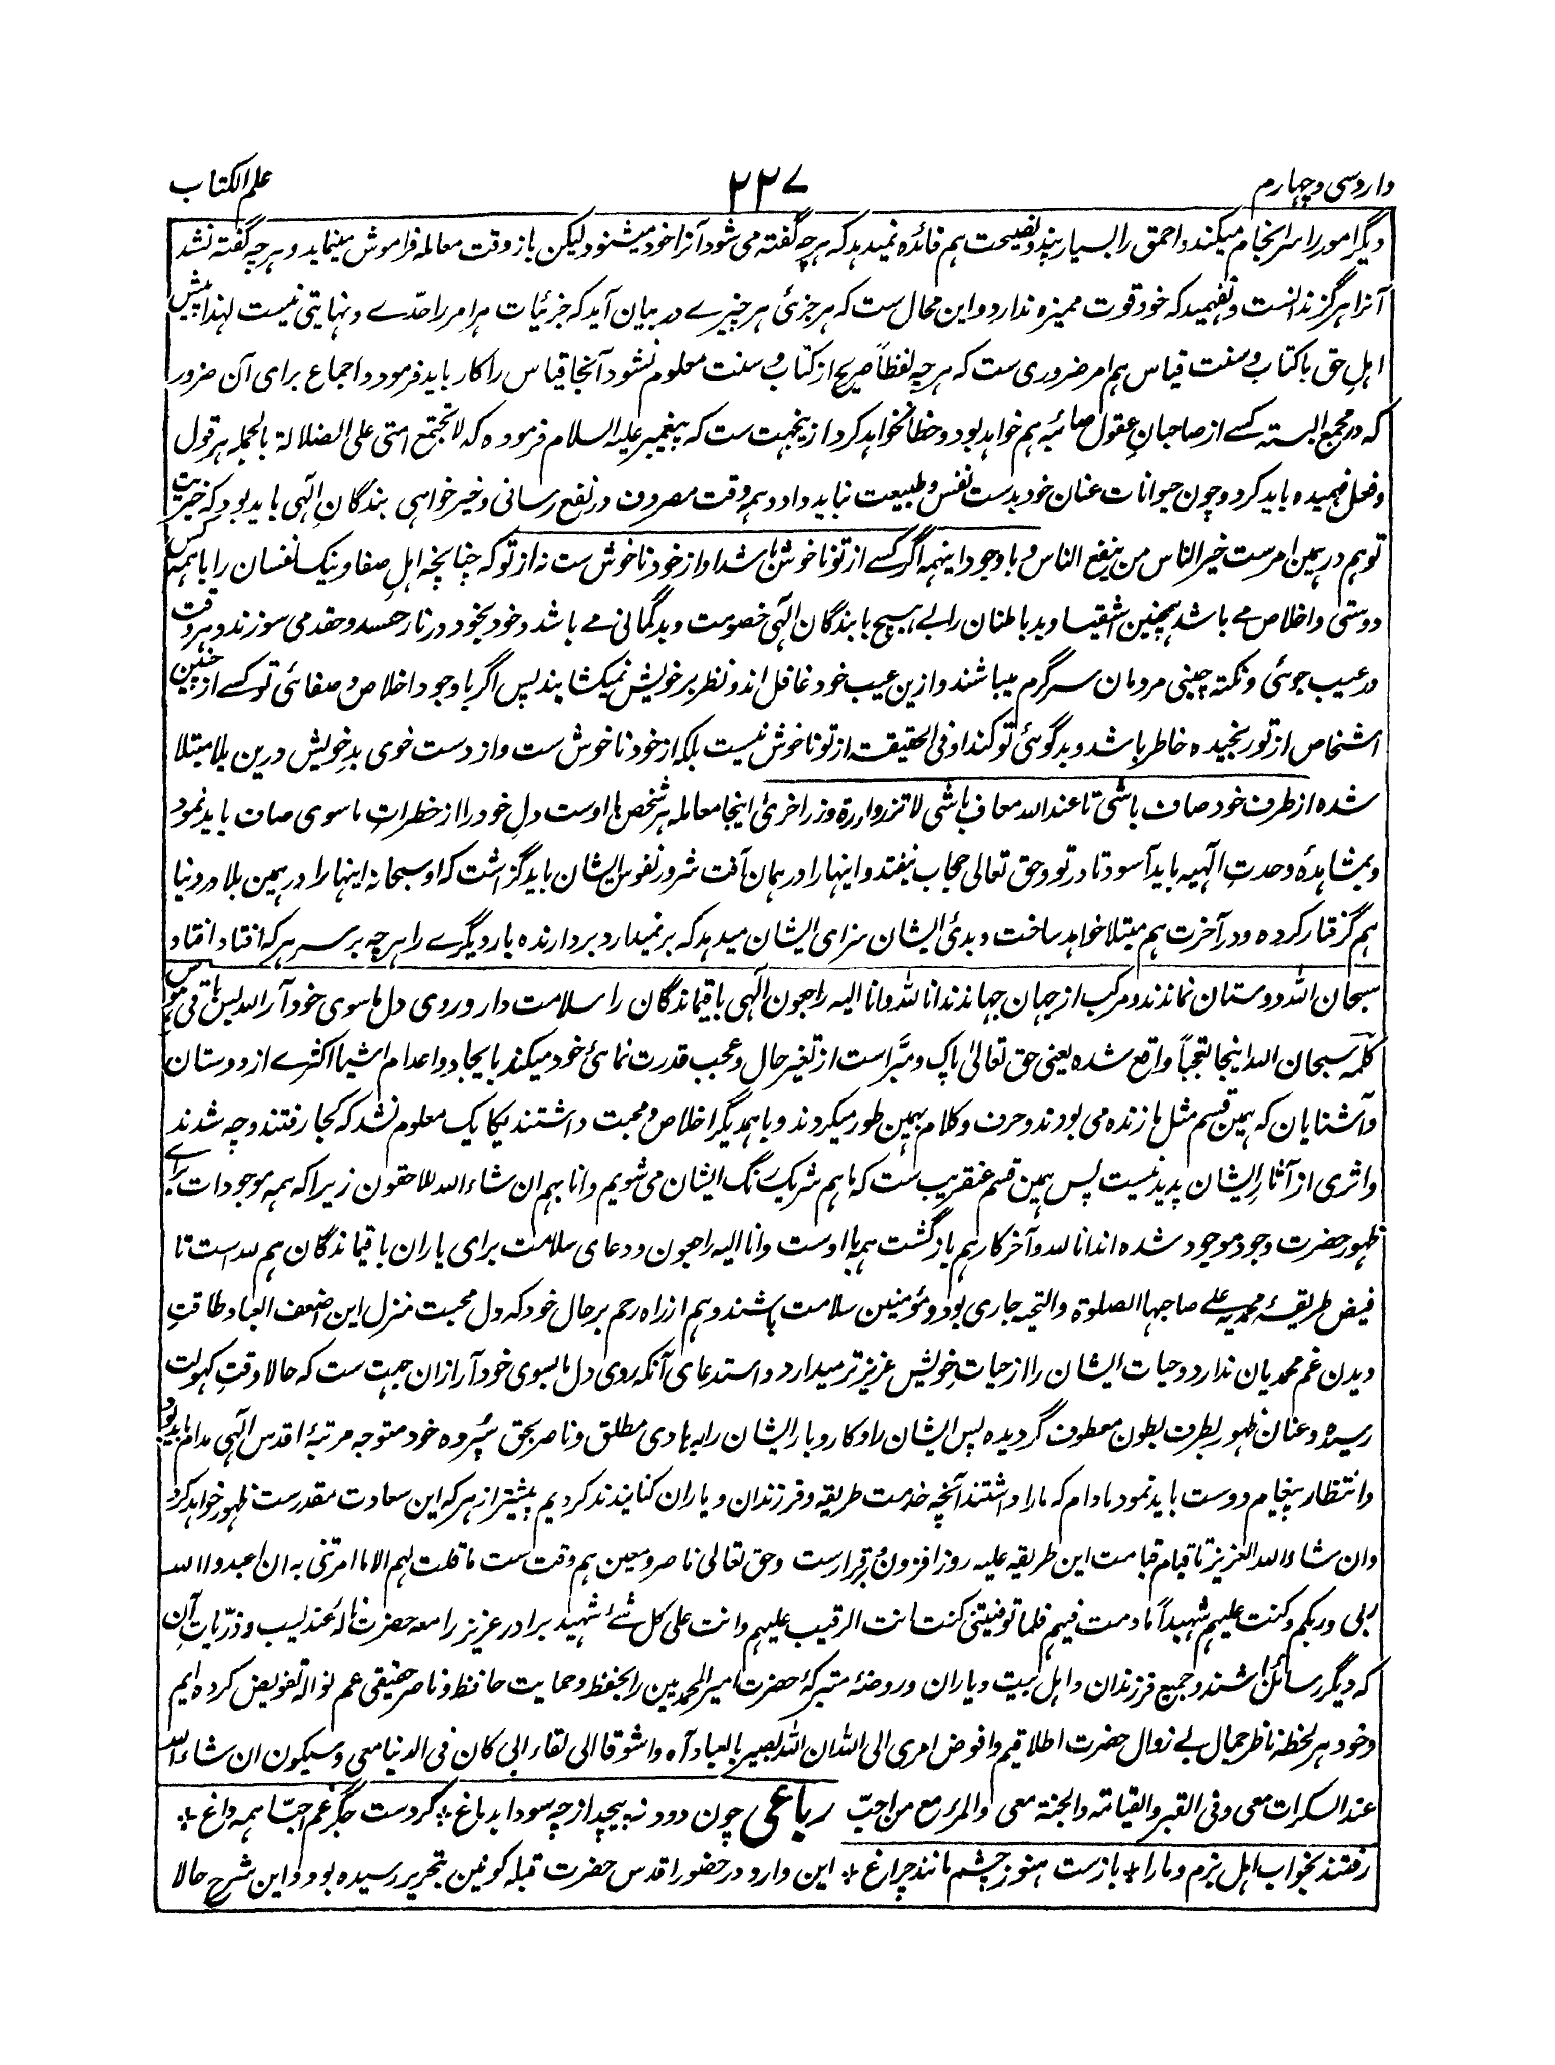 وارد سی و چهارم ۲۲۷ علم الکتاب
دیگر امور را سرانجام میکند و احمق را بسیار پند و نصیحت هم فائده نمیدهد که هرچه گفته می شود آنرا خود میشنود لیکن باز وقت معامله فراموش مینماید و هرچه گفته نشد
آنرا هرگز ندانست و نفهمید که خود قوت ممیزه ندارد و این محال ست که هر جزئی هر چیزے در بیان آید که جزئیات هر امر را حدّے و نهایتی نیست لهذا پیش
اهلِ حق با کتاب و سنت قیاس هم امر ضروری ست که هرچه لفظاً صریح از کتاب و سنت معلوم نشود آنجا قیاس را کار باید فرمود و اجماع برای آن ضرور
که در مجمع البسته کسے از صاحبانِ عقول صائبه هم خواهد بود و خطا نخواهد کرد ازینجهت ست که پیغمبر علیه السلام فرموده که لا تجتمع امتی علی الضلالة بالجمله هر قول
و فعل فهمیده باید کرد و چون حیوانات عنان خود بدست نفس و طبیعت نباید داد و همه وقت مصروف در نفع رسانی و خیر خواهی بندگانِ الٓهی باید بود که خیریت
تو هم در همین امرست خیر الناس من ینفع الناس و با وجود اینهمه اگر کسے از تو ناخوش باشد او از خود ناخوش ست نه از تو که چنانچه اهلِ صفا و نیک نفسان را با همه کس
دوستی و اخلاص مے باشد همچنین اشقیا و بد باطنان را بے هیچ با بندگان الٓهی خصومت و بدگمانی مے باشد و خود بخود در نار حسد و حقد می سوزند و هر وقت
در عیب جوئی و نکته چینی مردمان سرگرم میباشند و ازین عیب خود غافل اند و نظر بر خویش نمیکشایند پس اگر با وجود اخلاص و صفائی تو کسے از چنین
اشخاص از تو رنجیده خاطر باشد و بدگوئی تو کند او فی الحقیقت از تو ناخوش نیست بلکه از خود ناخوش ست و از دست خوی بدِ خویش درین بلا مبتلا
شده از طرف خود صاف باشی تا عند الله معاف باشی لا تزر وازرة وزر اخرئ اینجا معامله هر شخص با اوست دلِ خود را از خطراتِ ماسوی صاف باید نمود
و بمشاهدهٔ وحدتِ الٓهیه باید آسود تا در تو و حق تعالی حجاب نیفتد و اینها را در همان آفت شرور نفوس ایشان باید گزاشت که او سبحانه اینها را در همین بلا در دنیا
هم گرفتار کرده و در آخرت هم مبتلا خواهد ساخت و بدئ ایشان سزای ایشان میدهد که برنمیدارد بردارنده بار دیگرے را هرچه بر سر هر که افتاد افتاد
سبحان الله دوستان نماندند و مرکب از جهان جهاندند انا لله و انا الیه راجعون الٓهی باقیماندگان را سلامت دار و روی دل ما سوی خود آر الله بس باقی هوس
کلمهٔ سبحان الله اینجا تعجباً واقع شده یعنی حق تعالیٰ پاک و مبرّاست از تغیر حال و عجب قدرت نمائ خود میکند بایجاد و اعدام اشیا اکثرے از دوستان
و آشنایان که بهمین قسم مثل ما زنده می بودند و حرف و کلام بهمین طور میکردند و با همدیگر اخلاص و محبت داشتند یکایک معلوم نشد که کجا رفتند و چه شدند
و اثری از آثار ایشان پدید نیست پس همین قسم عنقریب ست که ما هم شریک رنگ ایشان می شویم و انا بهم ان شاء الله للاحقون زیرا که همه موجودات براے
ظهور حضرت وجود موجود شده اند انا لله و آخر کار هم بازگشت همه با اوست و انا الیه راجعون و دعای سلامت برای یاران باقیماندگان هم لله است تا
فیض طریقهٔ محمدیه علی صاحبها الصلوة والتحیه جاری بود و مؤمنین سلامت باشند و هم از راه رحم بر حال خود که دل محبت منزل این اضعف العباد طاقتِ
دیدن غم محمدیان ندارد و حیات ایشان را از حیات خویش عزیز تر میدارد و استدعای آنکه روی دل ما بسوی خود آر ازان جهت ست که حالا وقتِ کهولت
رسیده و عنان ظهور بطرف بطون معطوف گردیده پس ایشان را و کار و بار ایشان را به هادی مطلق و ناصر بحق سپرده خود متوجه مرتبهٔ اقدس الٓهی مدام باید بود
و انتظار پیغام دوست باید نمود مادام که ما را داشتند آنچه خدمت طریقه و فرزندان و یاران کنانیدند کردیم پیشتر از هر که این سعادت مقدرست ظهور خواهد کرد
و ان شاء الله العزیز تا قیام قیامت این طریقه علیه روز افزون و برقرارست و حق تعالی ناصر و معین هم وقت ست ما قلت لهم الا ما امرتنی به ان اعبدوا الله
ربی و ربکم و کنت علیهم شهیداً ما دمت فیهم فلما توفیتنی کنت انت الرقیب علیهم وانت علی کل شئ شهید برادر عزیز را معه حضرت نالهٔ عندلیب و ذرّیات آن
که دیگر رسائل اشند و جمیع فرزندان و اهل بیت و یاران و روضهٔ متبرکهٔ حضرت امیر المحمدیین را بحفظ و حمایت حافظ و ناصر حقیقی عم نواله تفویض کرده ایم
و خود هر لحظه ناظر جمال بے زوال حضرت اطلاقیم و افوض امری الی الله ان الله بصیر بالعباد آه و اشوقا الی لقاء ابی کان فی الدنیا معی و سیکون ان شاء الله
عند السکرات معی و فی القبر والقیامة والجنة معی والمرء مع من احبّ رباعی چون دود نه پیچد از چه سودا بدماغ * کردست جگر غم احبّا همه داغ *
رفتند بخواب اهلِ بزم و ما را * بازست هنوز چشم مانند چراغ * این وارد در حضور اقدس حضرت قبله کونین بتحریر رسیده بود و این شرح حالا